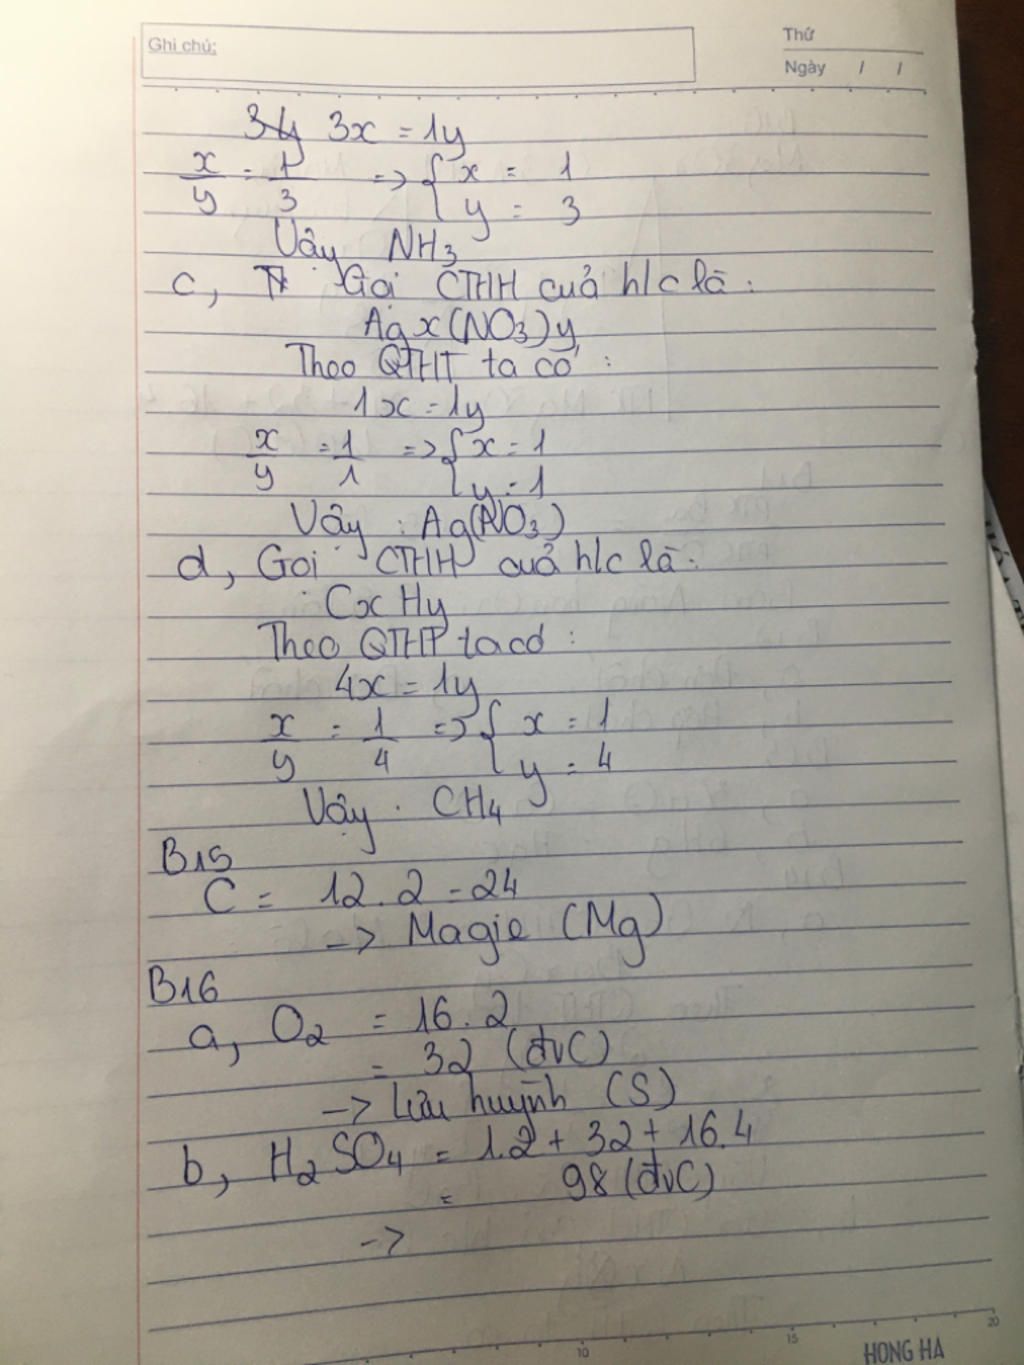 Ghi chú:
Thứ
Ngày / /
3y 3x = 1y
x/y = 1/3 => { x = 1
y = 3
Vậy NH3
c, Gọi CTHH cuả h/c là :
Agx(NO3)y
Theo QTHT ta có :
1x = 1y
x/y = 1/1 => { x = 1
y = 1
Vậy : Ag(NO3)
d, Gọi CTHH cuả h/c là :
CxHy
Theo QTHT ta có :
4x = 1y
x/y = 1/4 => { x = 1
y = 4
Vậy . CH4
B15
C = 12.2 = 24
-> Magie (Mg)
B16
a, O2 = 16.2
= 32 (đvC)
-> Lưu huỳnh (S)
b, H2SO4 = 1.2 + 32 + 16.4
= 98 (đvC)
->
10 15 20
HONG HA